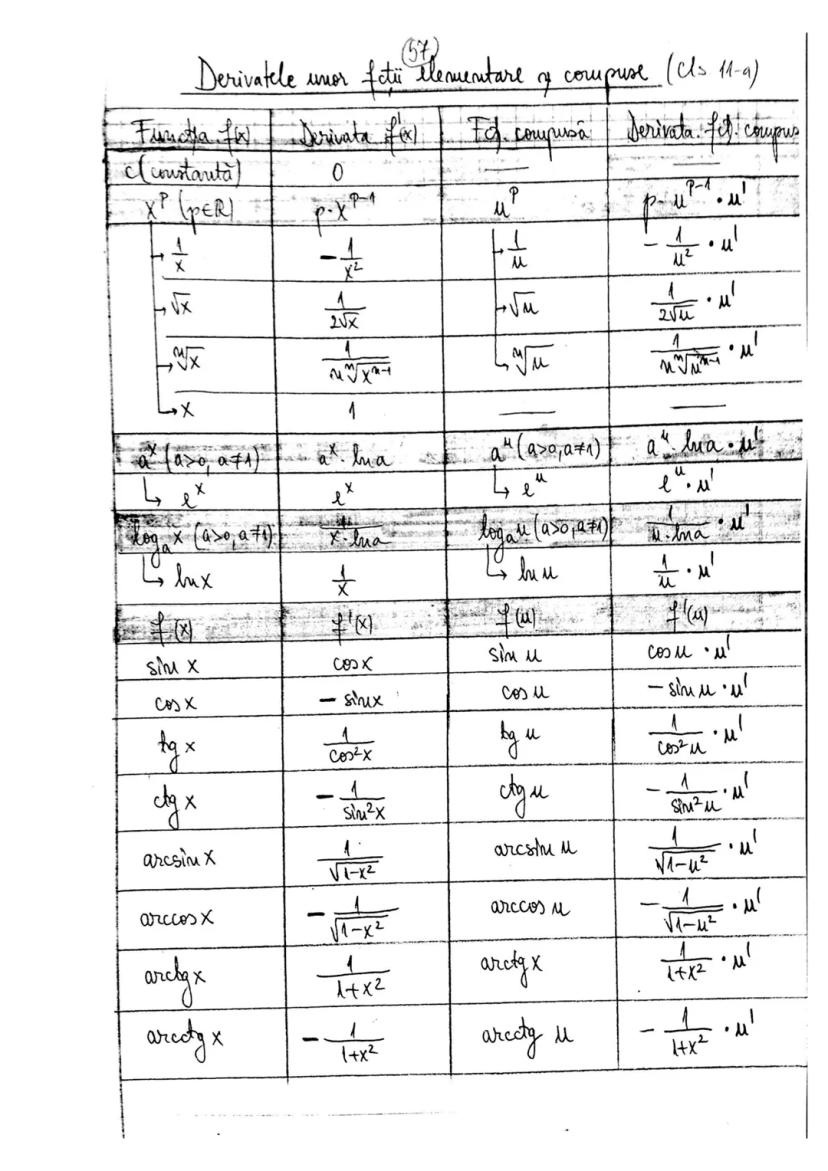 57
Derivatele unor fcții elementare și compuse (Cls 11-a)
Funcția f(x) | Derivata f'(x) | Fcț. compusă | Derivata fcț. compus
c (constantă) | 0 | — | —
x^p (p∈ℝ) | p·x^(p-1) | u^p | p·u^(p-1)·u'
↳ 1/x | -1/x² | ↳ 1/u | -1/u²·u'
↳ √x | 1/(2√x) | ↳ √u | 1/(2√u)·u'
↳ ⁿ√x | 1/(n ⁿ√(x^(n-1))) | ↳ ⁿ√u | 1/(n ⁿ√(u^(n-1)))·u'
↳ x | 1 | — | —
a^x (a>0, a≠1) | a^x·ln a | a^u (a>0, a≠1) | a^u·ln a·u'
↳ e^x | e^x | ↳ e^u | e^u·u'
log_a x (a>0, a≠1) | 1/(x·ln a) | log_a u (a>0, a≠1) | 1/(u·ln a)·u'
↳ ln x | 1/x | ↳ ln u | 1/u·u'
f(x) | f'(x) | f(u) | f'(u)
sin x | cos x | sin u | cos u·u'
cos x | -sin x | cos u | -sin u·u'
tg x | 1/(cos²x) | tg u | 1/(cos²u)·u'
ctg x | -1/(sin²x) | ctg u | -1/(sin²u)·u'
arcsin x | 1/√(1-x²) | arcsin u | 1/√(1-u²)·u'
arccos x | -1/√(1-x²) | arccos u | -1/√(1-u²)·u'
arctg x | 1/(1+x²) | arctg x | 1/(1+x²)·u'
arcctg x | -1/(1+x²) | arcctg u | -1/(1+x²)·u'